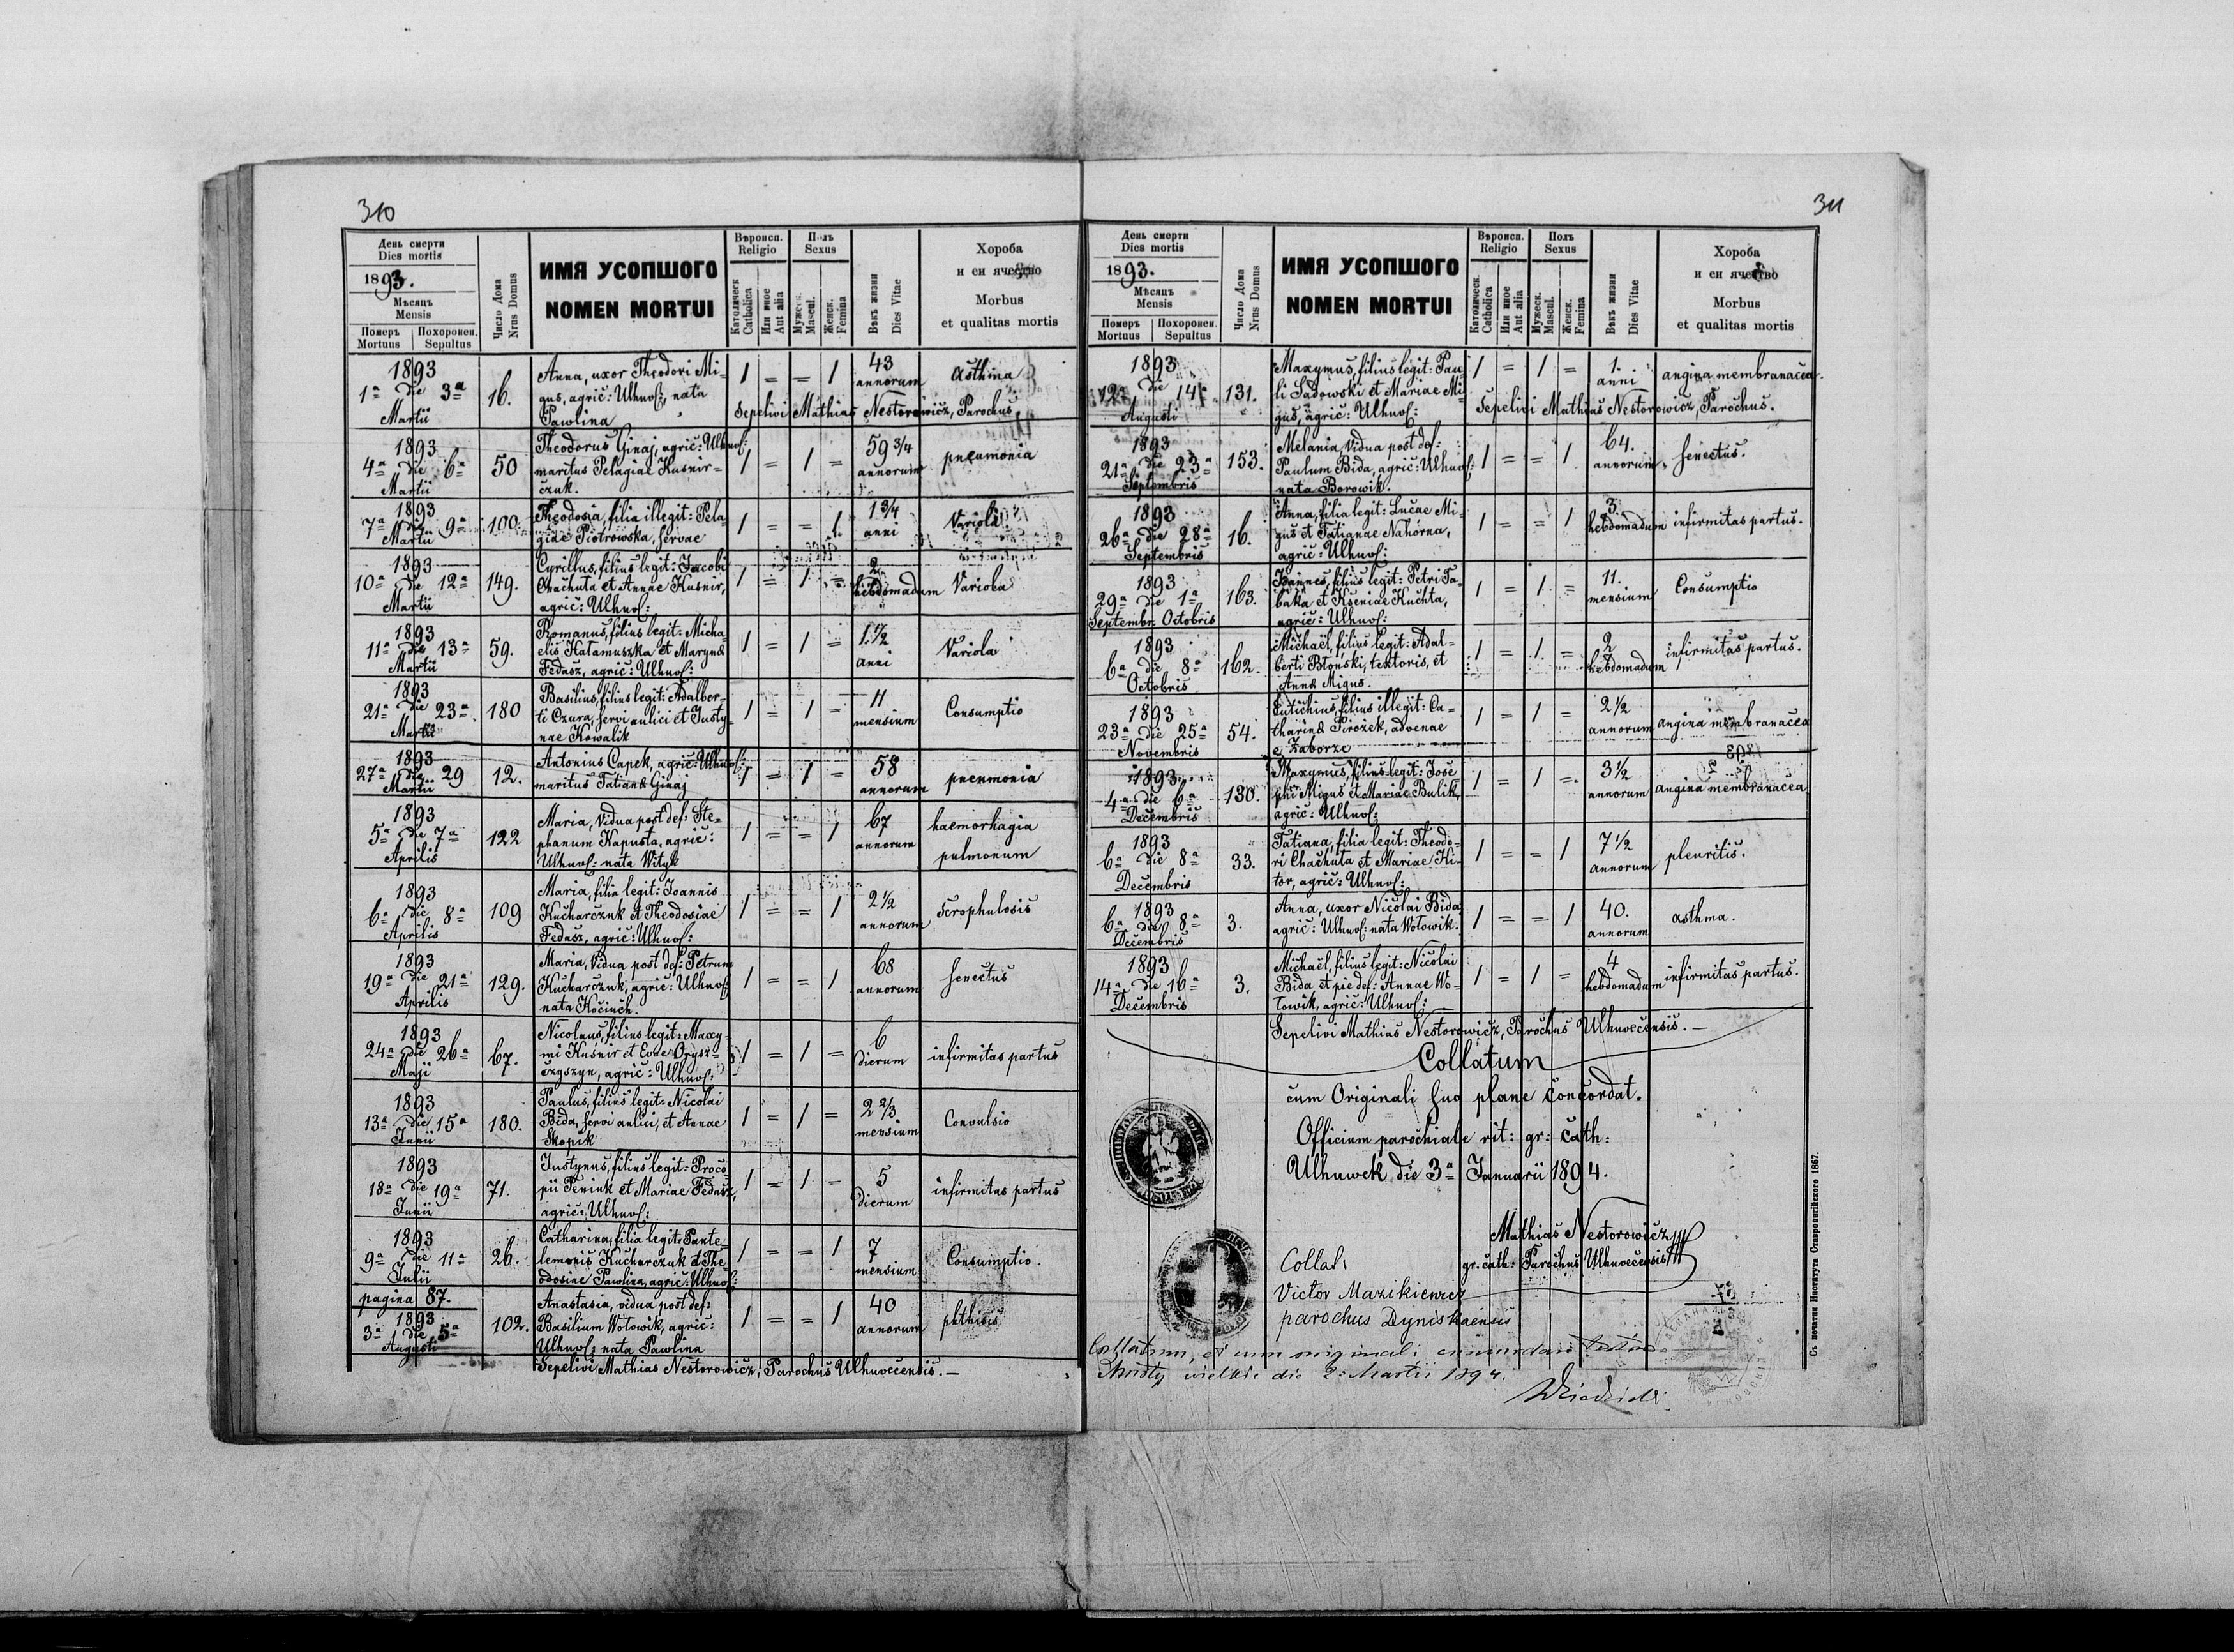 310
День смерти
Dies mortis
1893.
Мѣсяцъ
Mensis
Померъ Похоронен.
Mortuus Sepultus
Число Дома
Nrus Domus
ИМЯ УСОПШОГО
NOMEN MORTUI
Вѣроисп.
Religio
Католическ
Catholica
Или иное
Aut alia
Полъ
Sexus
Мужеск.
Mascul.
Женск.
Femina
Вѣкъ жизни
Dies Vitae
Хороба
и еи ячество
Morbus
et qualitas mortis
1893
1a die 3a
Martii
16.
Anna, uxor Theodori Mi-
gus, agric: Ulhuv:, nata
Pawlina
1 = = 1
43
annorum
Asthma
Sepelivi Mathias Nestorowicz, Parochus
1893
4a die 6a
Martii
50
Theodorus Ginaj, agric: Ulhuv:
maritus Pelagiae Kusnir-
czuk.
1 = 1 =
59 3/4
annorum
pneumonia
1893
7a die 9a
Martii
100.
Theodosia, filia illegit: Pela
giae Piotrowska, servae
1 = = 1
1 3/4
anni
Variola
1893
10a die 12a
Martii
149.
Cyrillus, filius legit: Jacobi
Chachuta et Annae Kusnir,
agric: Ulhuv:
1 = 1 =
2
hebdomadum
Variola
1893
11a die 13a
Martii
59.
Romanus, filius legit: Micha-
elis Kałamuszka et Marynae
Fedasz, agric: Ulhuv:
1 = 1 =
1. 1/2
anni
Variola
1893
21a die 23a
Martii
180
Basilius, filius legit: Adalber-
ti Czura, servi aulici et Justy
nae Kowalik
1 = 1 =
11
mensium
Consumptio
1893
27a die 29
Martii
12.
Antonius Capek, agric: Ulhuv:
maritus Tatianae Ginaj
1 = 1 =
58
annorum
pneumonia
1893
5a die 7a
Aprilis
122
Maria, vidua post def: Ste-
phanum Kapusta, agric:
Ulhuv: nata Wityk
1 = = 1
67
annorum
haemorhagia
pulmonum
1893
6a die 8a
Aprilis
109
Maria, filia legit: Joannis
Kucharczuk et Theodosiae
Fedasz, agric: Ulhuv:
1 = = 1
2 1/2
annorum
Scrophulosis
1893
19a die 21a
Aprilis
129.
Maria, vidua post def: Petrum
Kucharczuk, agric: Ulhuv:
nata Kociuch.
1 = = 1
68
annorum
senectus
1893
24a die 26a
Maji
67.
Nicolaus, filius legit: Maxy-
mi Kusnir et Evae Orysz-
czyszyn, agric: Ulhuv:
1 = 1 =
6
dierum
infirmitas partus
1893
13a die 15a
Junii
180.
Paulus, filius legit: Nicolai
Bida, servi aulici, et Annae
Skopik
1 = 1 =
2 2/3
mensium
Convulsio
1893
18a die 19a
Junii
71.
Justynus, filius legit: Proco
pii Peniuk et Mariae Fedasz,
agric: Ulhuv:
1 = 1 =
5
dierum
infirmitas partus
1893
9a die 11a
Julii
26.
Catharina, filia legit: Pante-
lemonis Kucharczuk et The-
odosiae Pawlina, agric: Ulhuv:
1 = = 1
7
mensium
Consumptio.
pagina 87.
1893
3a die 5a
Augusti
102.
Anastasia, vidua post def:
Basilium Wołowik, agric:
Ulhuv: nata Pawlina
1 = = 1
40
annorum
phthisis
Sepelivi Mathias Nestorowicz, Parochus Ulhuvecensis. —
311
День смерти
Dies mortis
1893.
Мѣсяцъ
Mensis
Померъ Похоронен.
Mortuus Sepultus
Число Дома
Nrus Domus
ИМЯ УСОПШОГО
NOMEN MORTUI
Вѣроисп.
Religio
Католическ.
Catholica
Или иное
Aut alia
Полъ
Sexus
Мужеск.
Mascul.
Женск.
Femina
Вѣкъ жизни
Dies Vitae
Хороба
и еи ячество
Morbus
et qualitas mortis
1893
12a die 14a
Augusti
131.
Maxymus, filius legit: Pau-
li Sadowski et Mariae Mi-
gus, agric: Ulhuv:
1 = 1 =
1.
anni
angina membranacea.
Sepelivi Mathias Nestorowicz, Parochus.
1893
21a die 23a
Septembris
153.
Melania, vidua post def:
Paulum Bida, agric: Ulhuv:
nata Borowik.
1 = = 1
64.
annorum
senectus.
1893
26a die 28a
Septembris
16.
Anna, filia legit: Lucae Mi-
gus et Tatianae Nahorna,
agric: Ulhuv:
1 = = 1
3.
hebdomadum
infirmitas partus.
1893
29a die 1a
Septembr. Octobris
163.
Joannes, filius legit: Petri Ta-
baka et Kseniae Kuchta,
agric: Ulhuv:
1 = 1 =
11.
mensium
Consumptio
1893
6a die 8a
Octobris
162.
Michael, filius legit: Adal-
berti Błonski, textoris, et
Annae Migus.
1 = 1 =
2
hebdomadum
infirmitas partus.
1893
23a die 25a
Novembris
54.
Eutichius, filius illegit: Ca-
tharinae Pirożek, advenae
e Zaborze
1 = 1 =
2 1/2
annorum
angina membranacea
1893
4a die 6a
Decembris
130.
Maxymus, filius legit: Jose
phi Migus et Mariae Bulik,
agric: Ulhuv:
1 = 1 =
3 1/2
annorum
angina membranacea
1893
6a die 8a
Decembris
33.
Tatiana, filia legit: Theodo-
ri Chachuta et Mariae Ki-
tor, agric: Ulhuv:
1 = = 1
7 1/2
annorum
pleuritis.
1893
6a die 8a
Decembris
3.
Anna, uxor Nicolai Bida
agric: Ulhuv: nata Wołowik.
1 = = 1
40.
annorum
asthma.
1893
14a die 16a
Decembris
3.
Michael, filius legit: Nicolai
Bida et pie def: Annae Wo-
łowik, agric: Ulhuv:
1 = 1 =
4
hebdomadum
infirmitas partus.
Sepelivi Mathias Nestorowicz, Parochus Ulhuvecensis. —
Collatum
cum Originali suo plane concordat.
Officium parochiale rit: gr: cath:
Ulhuwek die 3a Januarii 1894.
Mathias Nestorowicz
gr. cath: Parochus Ulhuvecensis
Collat:
Victor Mazikiewicz
parochus Dyniskaensis
Collatum, et cum originali
wielkie die 2. Martii 1894.
Съ печатни Института Ставропигійского 1867.